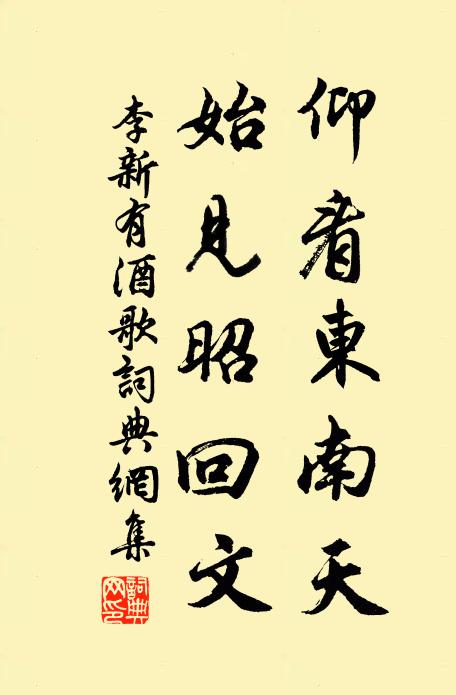 仰看東南天
始見昭回文
李新有酒歌詞典網集
詞典网印